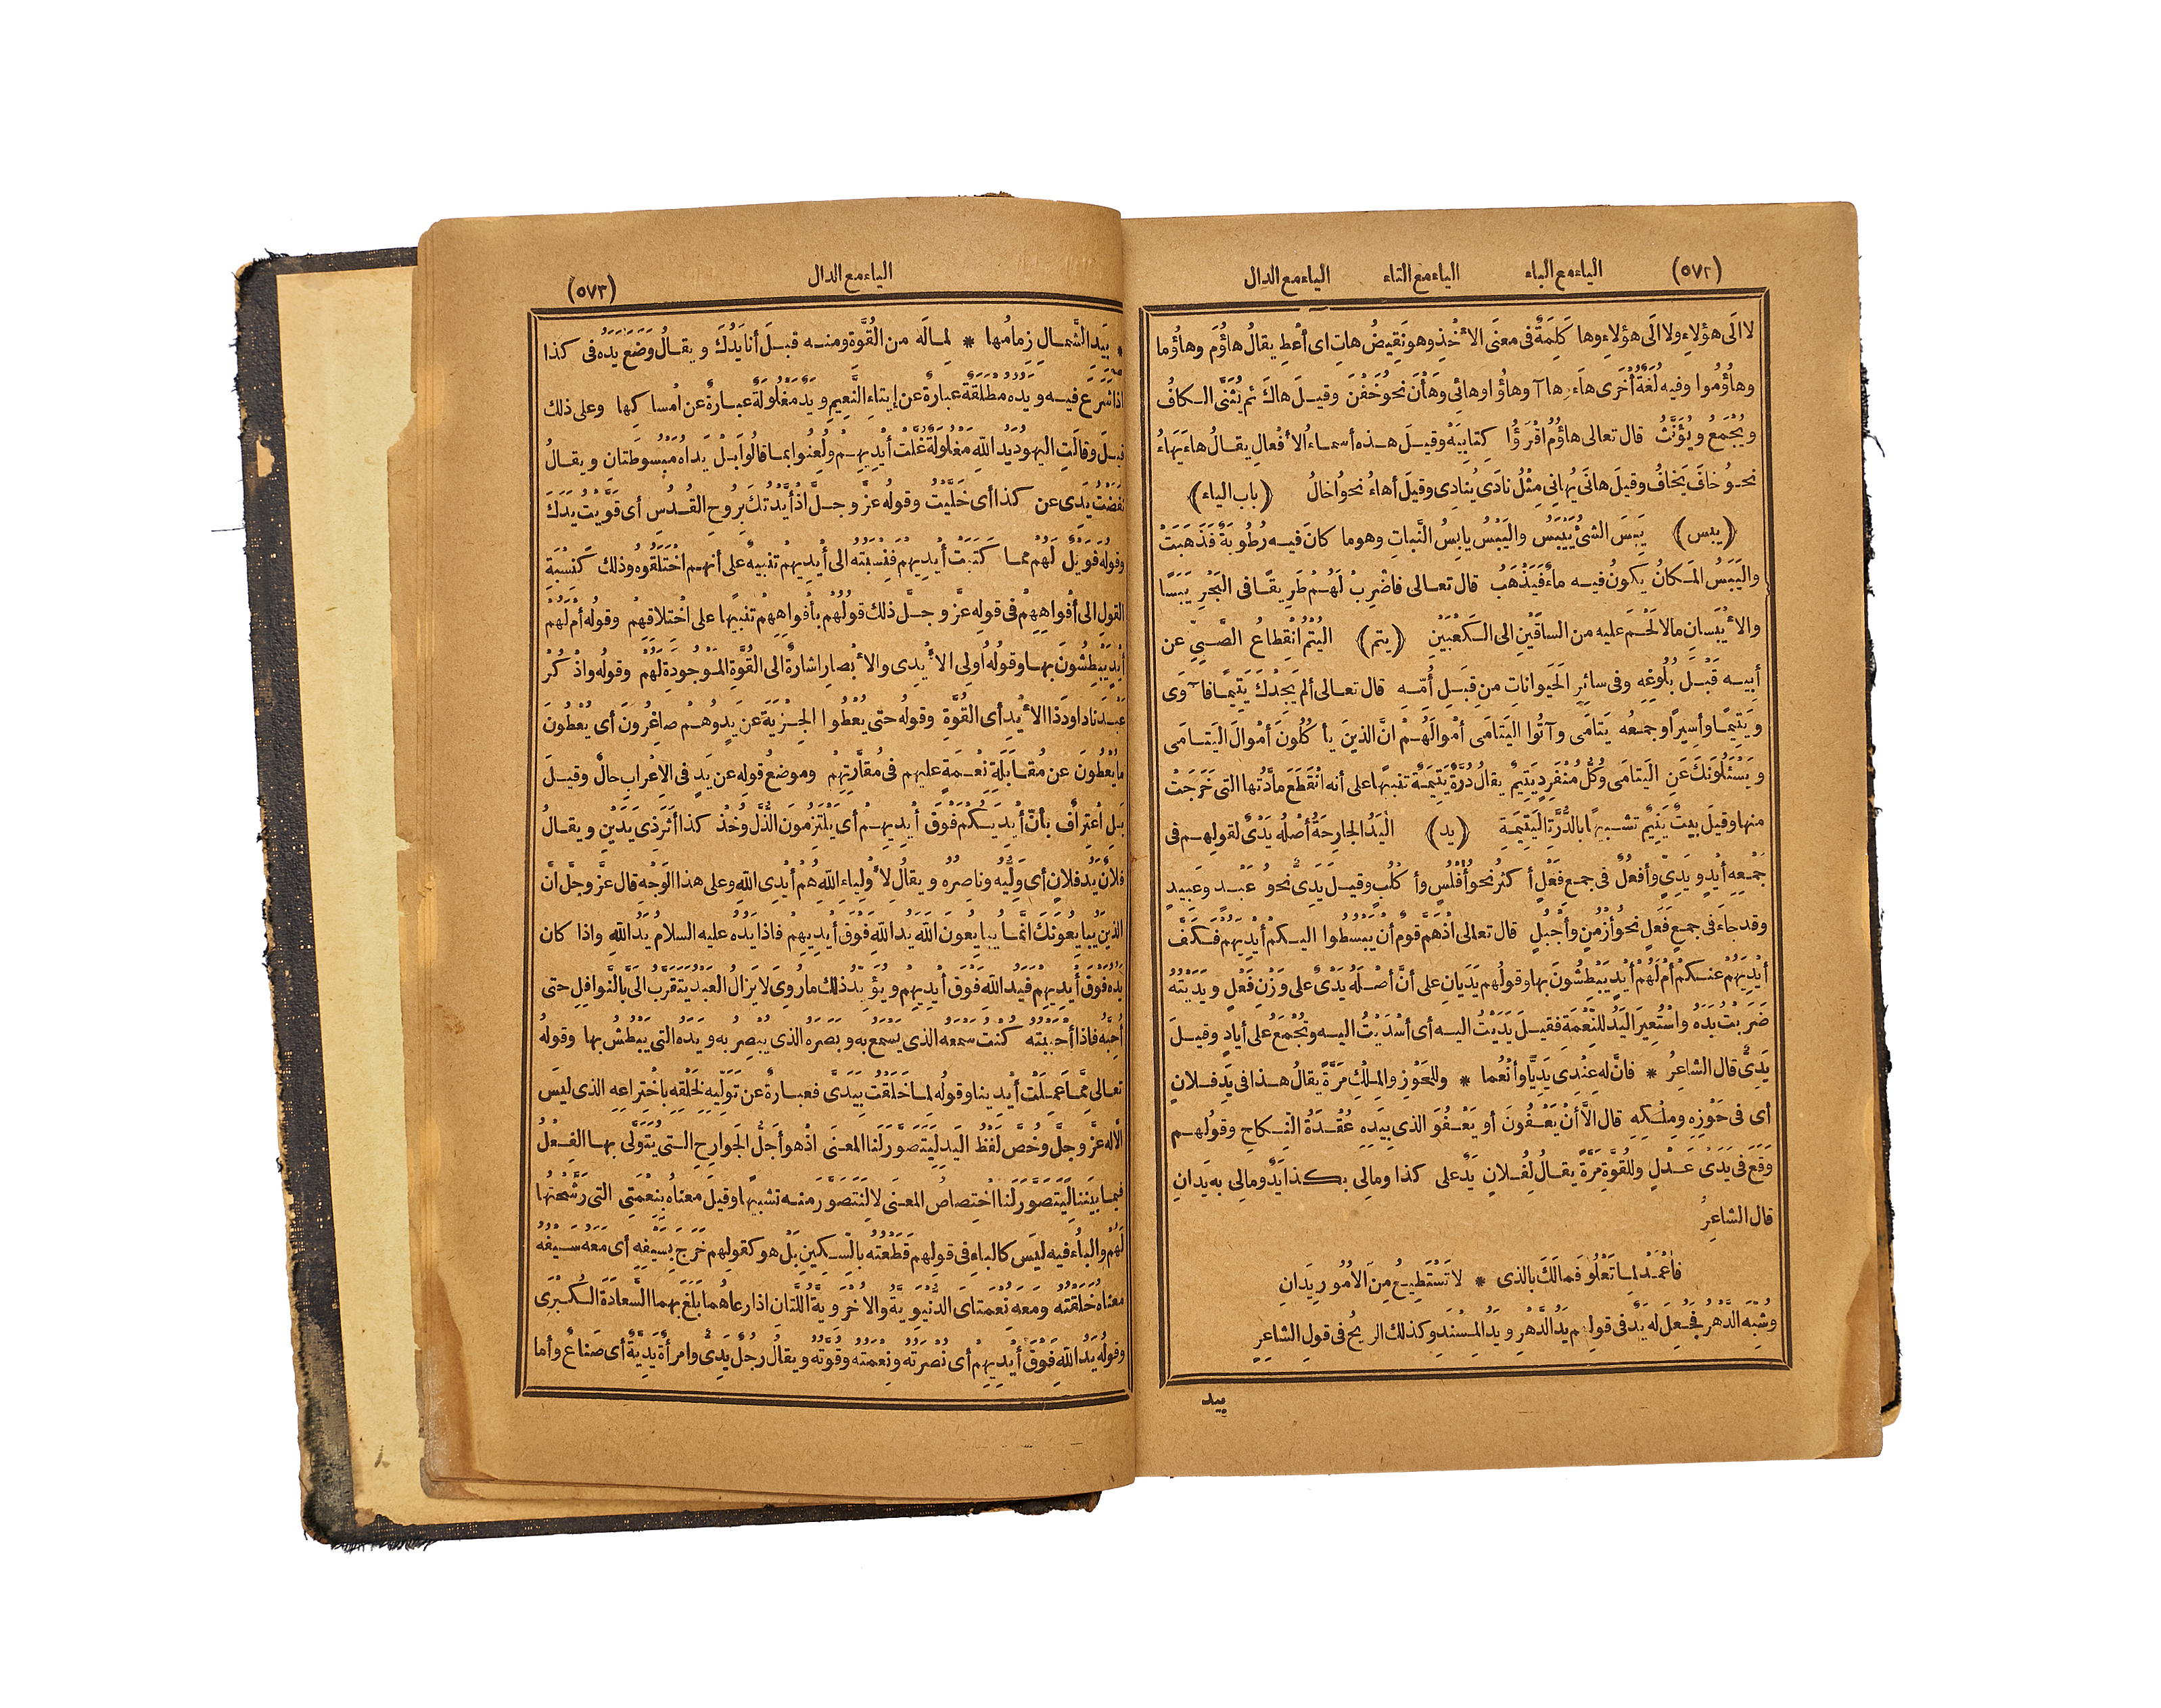 (٥٧٢) الياء مع الباء الياء مع التاء الياء مع الدال
لا الَى هؤلاءِ ولا الَى هؤلاءِ وها كَلِمَةٌ فى معنَى الأخْذِ وهو نَقِيضُ هاتِ اى أعْطِ يقالُ هاؤُمَ وهاؤُما
وهاؤُمُوا وفيه لُغَةٌ أُخْرَى هاءَ هاآ وهاؤُا وهائِى وهَأْنَ نحوُ خَفْنَ وقيلَ هاكَ ثم يُثَنَّى الكافُ
ويُجْمَعُ ويُؤَنَّثُ قال تعالى هاؤُمُ اقْرَؤُا كِتابِيَهْ وقيلَ هذه أسماءُ الأفْعالِ يقالُ هاءَ يَهاءُ
نحوُ خافَ يَخافُ وقيلَ هانَى يُهانِى مِثْلُ نادَى يُنادِى وقيلَ أهاءُ نحوُ اخالُ (باب الياء)
(يبس) يَبِسَ الشئُ يَيْبَسُ واليَبْسُ يابِسُ النَّباتِ وهو ما كانَ فيه رُطُوبَةٌ فَذَهَبَتْ
واليَبَسُ المَكانُ يكونُ فيه ماءٌ فَيَذْهَبُ قال تعالى فاضْرِبْ لَهُمْ طَرِيقًا فى البَحْرِ يَبَسًا
والأَيْبَسانِ مالا لَحْمَ عليه من الساقَيْنِ الى الكَعْبَيْنِ (يتم) اليُتْمُ انْقِطاعُ الصَّبِىِّ عن
أبيه قَبْلَ بُلُوغِهِ وفى سائِرِ الحَيَواناتِ من قِبَلِ أُمِّهِ قال تعالى ألم يَجِدْكَ يَتِيمًا فآوَى
ويَتِيمًا وأسِيرًا وجمعُه يَتامَى وآتُوا اليَتامَى أمْوالَهُمْ انَّ الذينَ يأكُلُونَ أمْوالَ اليَتامَى
ويَسْئَلُونَكَ عَنِ اليَتامَى وكُلُّ مُنْفَرِدٍ يَتِيمٌ يقالُ دُرَّةٌ يَتِيمَةٌ تنبيهًا على أنه انْقَطَعَ مادَّتُها التى خَرَجَتْ
منها وقيلَ بيتٌ يَتِيمٌ تشبيهًا بالدُّرَّةِ اليَتِيمَةِ (يد) اليَدُ الجارِحَةُ أصْلُه يَدْىٌ لقولِهم فى
جَمْعِه أيْدٍ ويَدِىٌّ وأفْعُلٌ فى جمعِ فَعْلٍ أكثرُ نحوُ أفْلُسٍ وأكْلُبٍ وقيلَ يَدِىٌّ نحوُ عَبْدٍ وعَبِيدٍ
وقد جاءَ فى جمعِ فَعَلٍ نحوُ أزْمُنٍ وأجْبُلٍ قال تعالى اذْ هَمَّ قومٌ أنْ يَبْسُطُوا اليكم أيْدِيَهم فَكَفَّ
أيْدِيَهُمْ عنكمْ أمْ لَهُمْ أيْدٍ يَبْطِشُونَ بها وقولُهم يَدَيانِ على أنَّ أصْلَهُ يَدْىٌ على وَزْنِ فَعْلٍ ويَدَيْتُهُ
ضَرَبْتُ يَدَهُ واسْتُعِيرَ اليَدُ للنِّعْمَةِ فقيلَ يَدَيْتُ اليه أى أسْدَيْتُ اليه وتُجْمَعُ على أيادٍ وقيلَ
يَدِىٌّ قال الشاعِرُ * فانَّ له عِنْدِى يَدِيًّا وأنْعُما * وللحَوْزِ والمِلْكِ مَرَّةً يقالُ هذا فى يَدِ فلانٍ
أى فى حَوْزِهِ ومِلْكِهِ قال الَّا أنْ يَعْفُونَ أو يَعْفُوَ الذى بِيَدِهِ عُقْدَةُ النِّكاحِ وقولُهم
وَقَعَ فى يَدَىْ عَدْلٍ وللقُوَّةِ مَرَّةً يقالُ لِفُلانٍ يَدٌ على كذا ومالِى بكذا يَدٌ ومالِى به يَدانِ
قال الشاعِرُ
فاعْمِدْ لِما تَعْلُو فَمالَكَ بالذى * لا تَسْتَطِيعُ مِنَ الأمُورِ يَدانِ
وشُبِّهَ الدَّهْرُ فَجُعِلَ له يَدٌ فى قولِهم يَدُ الدَّهْرِ ويَدُ المِسْنَدِ وكذلك الريحُ فى قولِ الشاعِرِ
بيد
الياء مع الدال (٥٧٣)
* بِيَدِ الشَّمالِ زِمامُها * لِما لَه من القُوَّةِ ومنه قيلَ أنا يَدُكَ ويقالُ وَضَعَ يَدَه فى كذا
اذا شَرَعَ فيه ويَدُه مُطْلَقَةٌ عبارةٌ عن إيتاءِ النَّعِيمِ ويَدٌ مَغْلُولَةٌ عبارةٌ عن امْساكِها وعلى ذلك
قيلَ وقالَتِ اليهودُ يَدُ اللّٰهِ مَغْلُولَةٌ غُلَّتْ أيْدِيهِمْ ولُعِنُوا بما قالُوا بَلْ يَداهُ مَبْسُوطَتانِ ويقالُ
نَفَضْتُ يَدِى عن كذا أى خَلَّيْتُ وقولُه عزَّ وجلَّ اذْ أيَّدْتُكَ بِرُوحِ القُدُسِ أى قَوَّيْتُ يَدَكَ
وقولُه فَوَيْلٌ لَهُمْ مما كَتَبَتْ أيْدِيهِمْ فَنِسْبَتُه الى أيْدِيهِمْ تنبيهٌ على أنهم اخْتَلَقُوهُ وذلك كَنِسْبَةِ
القولِ الى أفْواهِهِمْ فى قوله عزَّ وجلَّ ذلك قولُهُم بأفْواهِهِمْ تنبيهًا على اخْتِلاقِهِمْ وقولُه أمْ لَهُمْ
أيْدٍ يَبْطِشُونَ بها وقولُهُ اُولِى الأيْدِى والأبْصارِ اشارةٌ الى القُوَّةِ المَوْجُودَةِ لَهُمْ وقولُه واذْكُرْ
عَبْدَنا داودَ ذا الأيْدِ أى القُوَّةِ وقولُه حتى يُعْطُوا الجِزْيَةَ عَنْ يَدٍ وهُمْ صاغِرُونَ أى يُعْطُونَ
ما يُعْطُونَ عن مُقابَلَةِ نِعْمَةٍ عليهم فى مُقارَّتِهِمْ وموضعُ قوله عن يَدٍ فى الاِعْرابِ حالٌ وقيلَ
بَلِ اعْتِرافٌ بأنّ أيْدِيَكُمْ فَوْقَ أيْدِيهِمْ أى يَلْتَزِمُونَ الذُّلَّ وخُذْ كذا أثَرَ ذِى يَدَيْنِ ويقالُ
فلانٌ يَدُ فلانٍ أى وَلِيُّه وناصِرُه ويقالُ لأوْلِياءِ اللّٰهِ هُمْ أيْدِى اللّٰهِ وعلى هذا الوَجْهِ قال عزَّ وجلَّ انَّ
الذينَ يُبايِعُونَكَ انَّما يُبايِعُونَ اللّٰهَ يَدُ اللّٰهِ فَوْقَ أيْدِيهِمْ فاذا يَدُه عليه السلام يَدُ اللّٰهِ واذا كان
يَدُه فَوْقَ أيْدِيهِمْ فَيَدُ اللّٰهِ فَوْقَ أيْدِيهِمْ ويُؤَيِّدُ ذلك ما رُوِىَ لا يَزالُ العَبْدُ يَتَقَرَّبُ الَىَّ بالنَّوافِلِ حتى
أُحِبَّهُ فاذا أحْبَبْتُه كُنْتُ سَمْعَه الذى يَسْمَعُ به وبَصَرَه الذى يُبْصِرُ به ويَدَه التى يَبْطُشُ بها وقولُه
تعالى مِمَّا عَمِلَتْ أيْدِينا وقولُه لِما خَلَقْتُ بِيَدَىَّ فعبارةٌ عن تَوَلِّيهِ لِخَلْقِهِ باخْتِراعِهِ الذى ليسَ
الَّا له عزَّ وجلَّ وخُصَّ لَفْظُ اليَدِ لِيَتَصَوَّرَ لَنا المعنَى اذْ هو أجَلُّ الجَوارِحِ التى يُتَوَلَّى بها الفِعْلُ
فيما بَيْنَنا لِيَتَصَوَّرَ لَنا اخْتِصاصُ المعنَى لا لِنَتَصَوَّرَ منه تشبيهًا وقيلَ معناه بِنِعْمَتِى التى رَشَّحْتُها
لَهُمْ والباءُ فيه ليسَ كالباءِ فى قولهم قَطَعْتُه بالسِّكِّينِ بَلْ هو كقولهم خَرَجَ بِسَيْفِهِ أى مَعَه سَيْفُه
معناه خَلَقْتُه ومَعَه نِعْمَتاىَ الدُّنْيَوِيَّةُ والأُخْرَوِيَّةُ اللَّتانِ اذا رعاهما بَلَغَ بهما السَّعادَةَ الكُبْرَى
وقولُه يَدُ اللّٰهِ فَوْقَ أيْدِيهِمْ أى نُصْرَتُه ونِعْمَتُه وقُوَّتُه ويقالُ رجلٌ يَدِىٌّ وامرأةٌ يَدِيَّةٌ أى صَناعٌ وأما